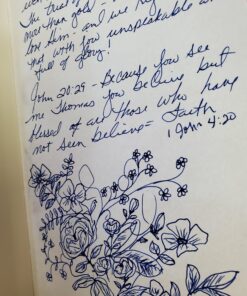 The trial of
more than gold - 
love Him - and we
not with joy unspeakable
full of glory!
John 20:25 - Because you see
me Thomas you believe but
blessed are those who have
not seen believe = Faith
1 John 4:20